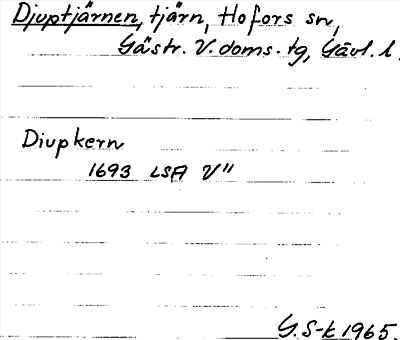 Djuptjärnen, tjärn, Hofors sn,
Gästr. V. doms. tg, Gävl. l.
Diupkern
1693 LSA V"
G. S-k 1965.